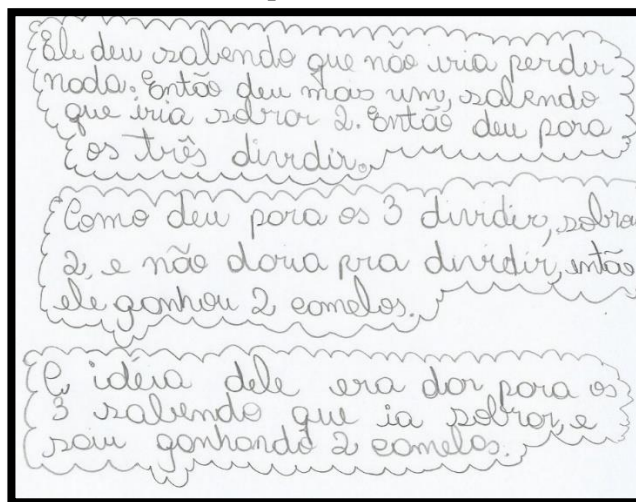 Ele deu sabendo que não iria perder
nada. Então deu mais um, sabendo
que iria sobrar 2. Então deu para
os três dividir.
Como deu para os 3 dividir, sobra
2, e não daria pra dividir, então
ele ganhou 2 camelos.
A idéia dele era dar para os
3 sabendo que ia sobrar, e
saiu ganhando 2 camelos.